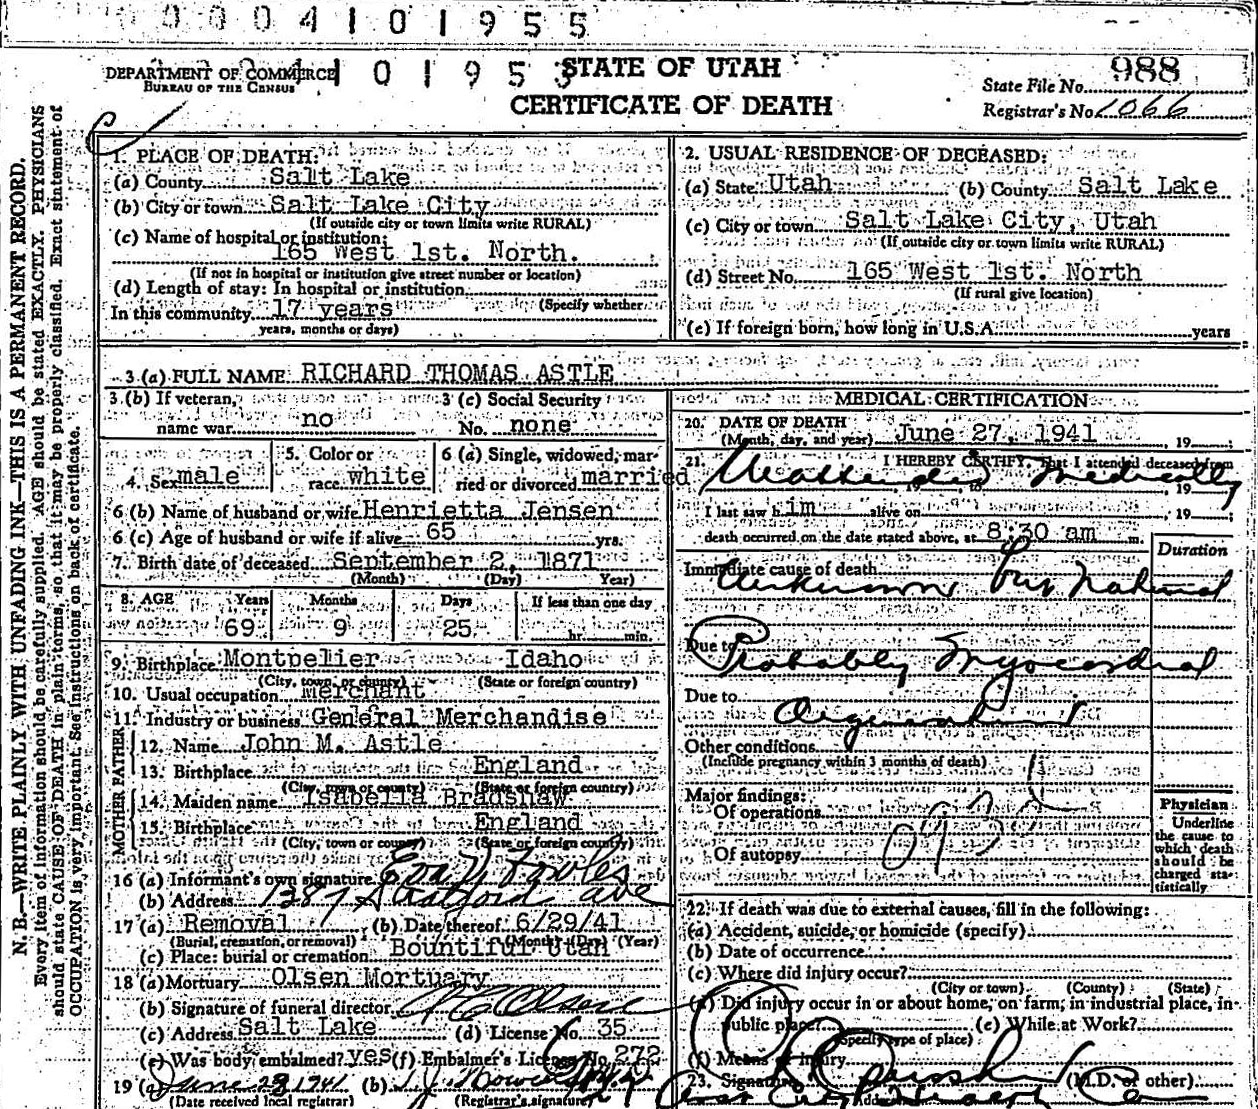 0004101955
DEPARTMENT OF COMMERCE
BUREAU OF THE CENSUS
STATE OF UTAH
CERTIFICATE OF DEATH
State File No. 988
Registrar's No. 1066
N. B.—WRITE PLAINLY WITH UNFADING INK—THIS IS A PERMANENT RECORD.
Every item of information should be carefully supplied. AGE should be stated EXACTLY. PHYSICIANS
should state CAUSE OF DEATH in plain terms, so that it may be properly classified. Exact statement of
OCCUPATION is very important. See instructions on back of certificate.
1. PLACE OF DEATH:
(a) County Salt Lake
(b) City or town Salt Lake City
(If outside city or town limits write RURAL)
(c) Name of hospital or institution:
165 West 1st. North.
(If not in hospital or institution give street number or location)
(d) Length of stay: In hospital or institution
(Specify whether
In this community 17 years
years, months or days)
2. USUAL RESIDENCE OF DECEASED:
(a) State Utah (b) County Salt Lake
(c) City or town Salt Lake City, Utah
(If outside city or town limits write RURAL)
(d) Street No. 165 West 1st. North
(If rural give location)
(e) If foreign born, how long in U.S.A. years
3 (a) FULL NAME RICHARD THOMAS ASTLE
3 (b) If veteran, name war no
3 (c) Social Security No. none
4. Sex male
5. Color or race white
6 (a) Single, widowed, married or divorced married
6 (b) Name of husband or wife Henrietta Jensen
6 (c) Age of husband or wife if alive 65 yrs.
7. Birth date of deceased September 2, 1871
(Month) (Day) Year)
8. AGE Years Months Days If less than one day
69 9 25 hr. min.
9. Birthplace Montpelier Idaho
(City, town, or county) (State or foreign country)
10. Usual occupation Merchant
11. Industry or business General Merchandise
FATHER
12. Name John M. Astle
13. Birthplace England
(City, town or county) (State or foreign country)
MOTHER
14. Maiden name Isabella Bradshaw
15. Birthplace England
(City, town or county) (State or foreign country)
16 (a) Informant's own signature Eva Y Fowles
(b) Address 1387 Stratford ave
17 (a) Removal (b) Date thereof 6/29/41
(Burial, cremation, or removal) (Month) (Day) (Year)
(c) Place: burial or cremation Bountiful Utah
18 (a) Mortuary Olsen Mortuary
(b) Signature of funeral director Olsen
(c) Address Salt Lake (d) License No. 35
(e) Was body embalmed? yes (f) Embalmer's License No. 272
19 (a) June 28 1941 (b)
(Date received local registrar) (Registrar's signature)
MEDICAL CERTIFICATION
20. DATE OF DEATH
(Month, day, and year) June 27, 1941, 19
21. I HEREBY CERTIFY, That I attended deceased from
Unattended Medically
, 19 to , 19
I last saw him alive on , 19 ;
death occurred on the date stated above, at 8:30 am m.
Duration
Immediate cause of death
Unknown but natural
Due to
Probably Myocardial
Due to
Other conditions
(Include pregnancy within 3 months of death)
Major findings:
Of operations
Of autopsy
Physician
Underline
the cause to
which death
should be
charged sta-
tistically
22. If death was due to external causes, fill in the following:
(a) Accident, suicide, or homicide (specify)
(b) Date of occurrence
(c) Where did injury occur?
(City or town) (County) (State)
(d) Did injury occur in or about home, on farm, in industrial place, in
public place? (e) While at Work?
(Specify type of place)
(f) Means of injury
23. Signature (M.D. or other)